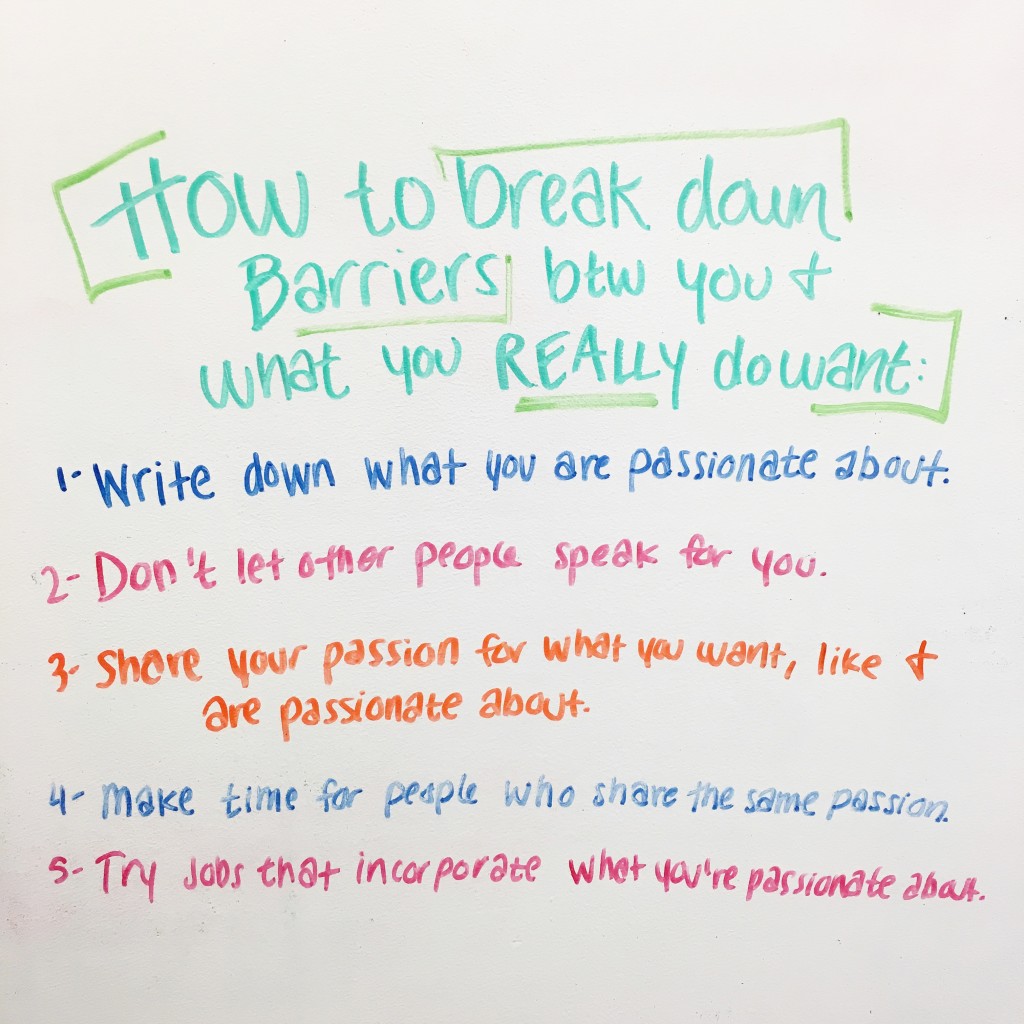 How to break down
Barriers btw you &
what you REALLY do want:
1- Write down what you are passionate about.
2- Don't let other people speak for you.
3- Share your passion for what you want, like &
are passionate about.
4- Make time for people who share the same passion.
5- Try Jobs that incorporate what you're passionate about.